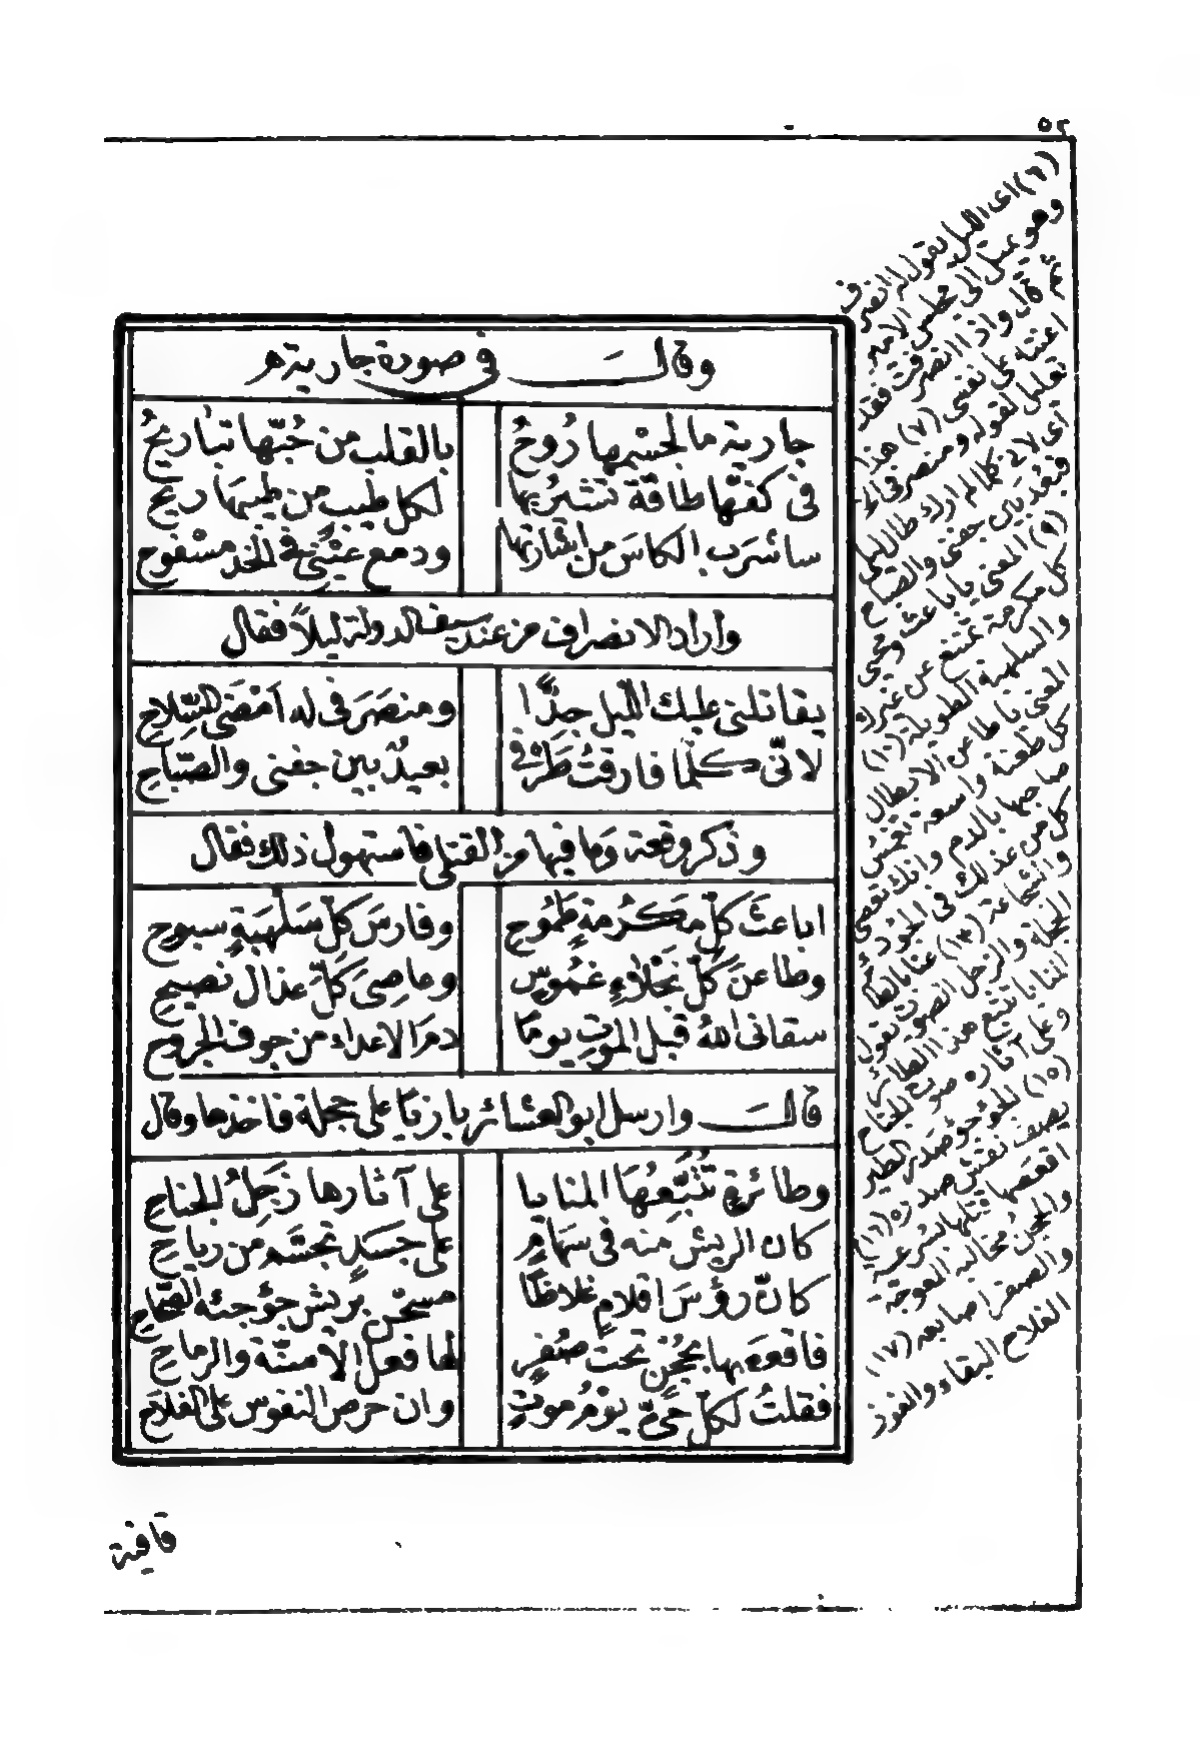 ٥٢
وقالــــــَ في صورة جارية
جارية ما لجسمها رُوحُ بالقلب من حُبّها تباريحُ
في كفّها طاقة تشيربها لكل طيب من طيبها ريح
ساشرَب الكاسَ من اشارتها ودمع عيني في الخد مسفوح
واراد الانصراف من عند سيف الدولة ليلاً فقال
يقاتلنى عليك الليل جدًّا ومنصرَفى له أمضَى السّلاحِ
لانّى كلّما فارقتُ طَرْفى بعيدٌ بين جفنى والصّباحِ
وذكر وقعة وما فيها من القتلى فاستهول ذلك فقال
اباعثَ كلّ مكرُمةٍ طَمُوحِ وفارسَ كلّ سَلْهَبَةٍ سبوحِ
وطاعنَ كلّ نجْلاءٍ غَمُوسٍ وعاصِىَ كلّ عذال نصيحِ
سقانى اللهُ قبل الموتِ يومًا دمَ الاعداء من جوف الجروحِ
قالــــــَ وارسل ابو العشائر بازيًا على حجلة فاخذها وقال
وطائرةٍ تُتَبّعُهَا المنايا على آثارها زَجِلُ الجناحِ
كان الريش منه فى سهامٍ على جسَدٍ تجسّم من رياحِ
كانّ رؤسَ اقلامٍ غلاظًا مسحن بريش جؤجئه الصّحاحِ
فاقعصها بحُجْنٍ تحت صُفرٍ لها فعل الاسنّة والرماحِ
فقلتُ لكلّ حىّ يومُ موتٍ وان حرص النفوس على الفلاحِ
(٦) اى الليل يقول له انصرف
وهو عيل الى مجلس الامير
ثم قال واذا انصرفت فقد
اعنته على نفسى (٧) هذا
تعليل لقوله ومنصرفى الخ
اى لانى كلما لم ارك طال ليلى
فبعد بين جفنى والصباح
(٩) المعنى يا باعث ومحيى
كل مكرمة تمتنع عن غيرك
والسلهبة الطويلة (١٠)
المعنى يا طاعن الابطال
كل طعنة واسعة تغمس
صاحبها بالدم وانك تعصى
كل من عذلك فى الجود
والشجاعة (١٣) عنا بالطائرة
الحجلة والزجل الصوت يقول
المنايا تتبع هذا الطائر
وعلى آثاره صوت الجناح
(١٥) الجؤجؤ صدر الطير
يصف نقش صدره (١٦)
اقعصها قتلها بسرعة
والحجن مخالبه العوجة
والصفر اصابعه (١٧)
الفلاح البقاء والفوز
قافية